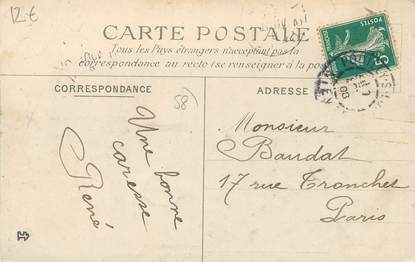 12€
CARTE POSTALE
Tous les Pays étrangers n'acceptant pas la
correspondance au recto (se renseigner à la pos
POSTES
5
CORRESPONDANCE
ADRESSE
58
Une bonne
caresse
René
Monsieur
Baudat
17 rue Tronchet
Paris